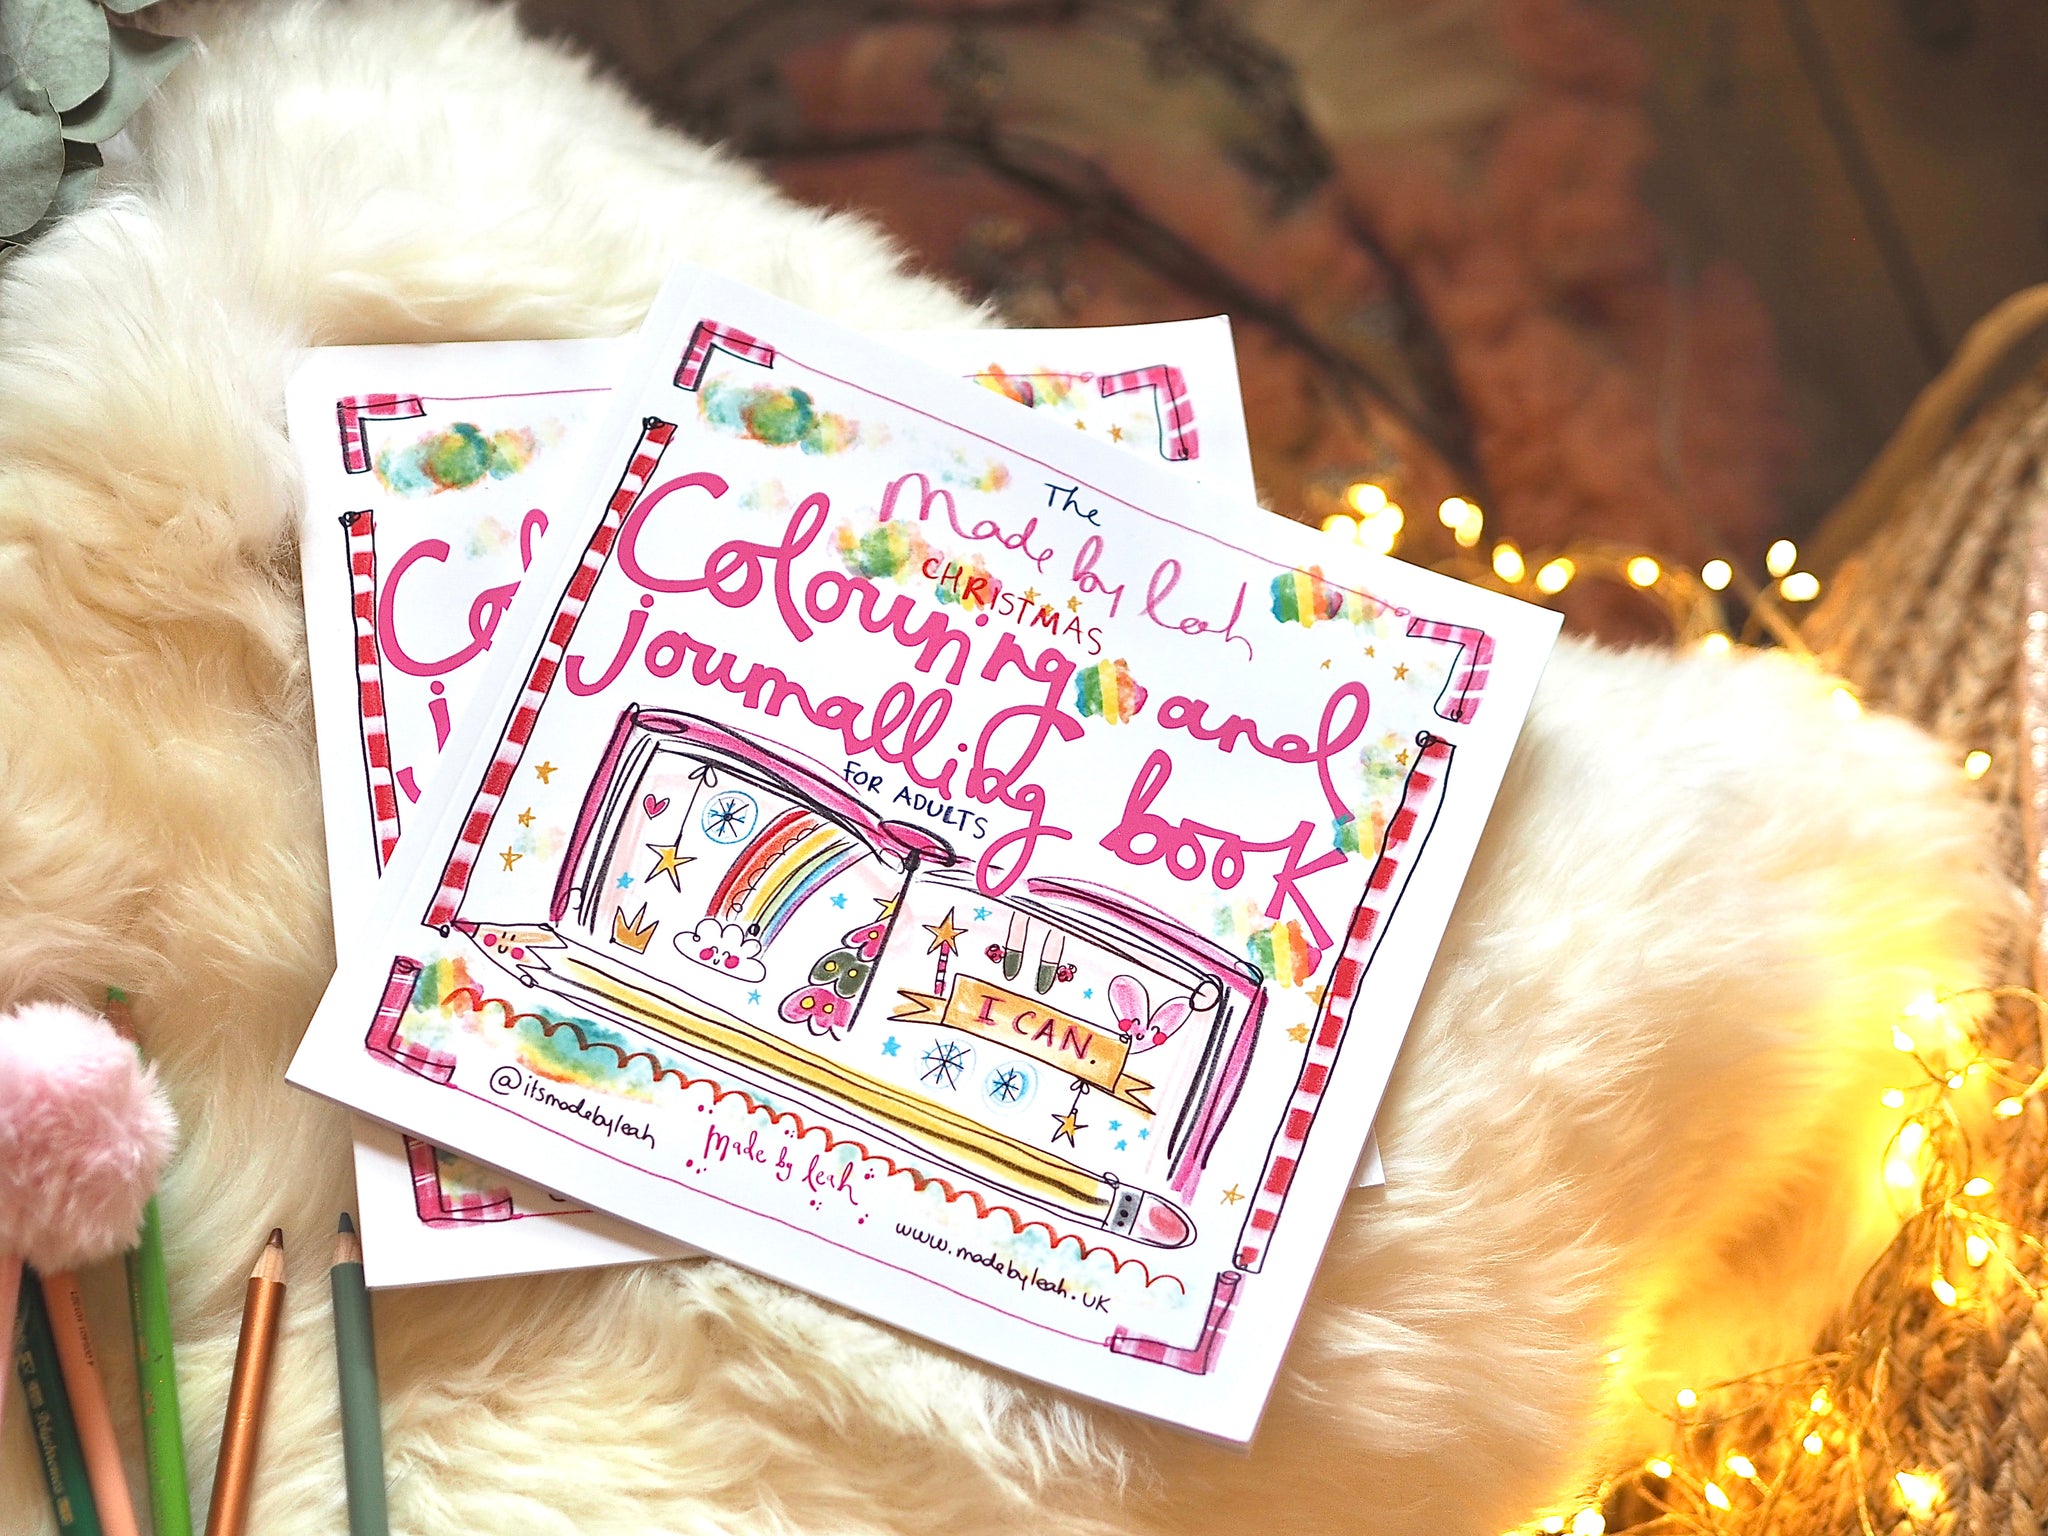 The
Made by Leah
CHRISTMAS
Colouring and
journalling book
FOR ADULTS
I CAN.
@itsmadebyleah
Made by Leah
www.madebyleah.uk
Co
j